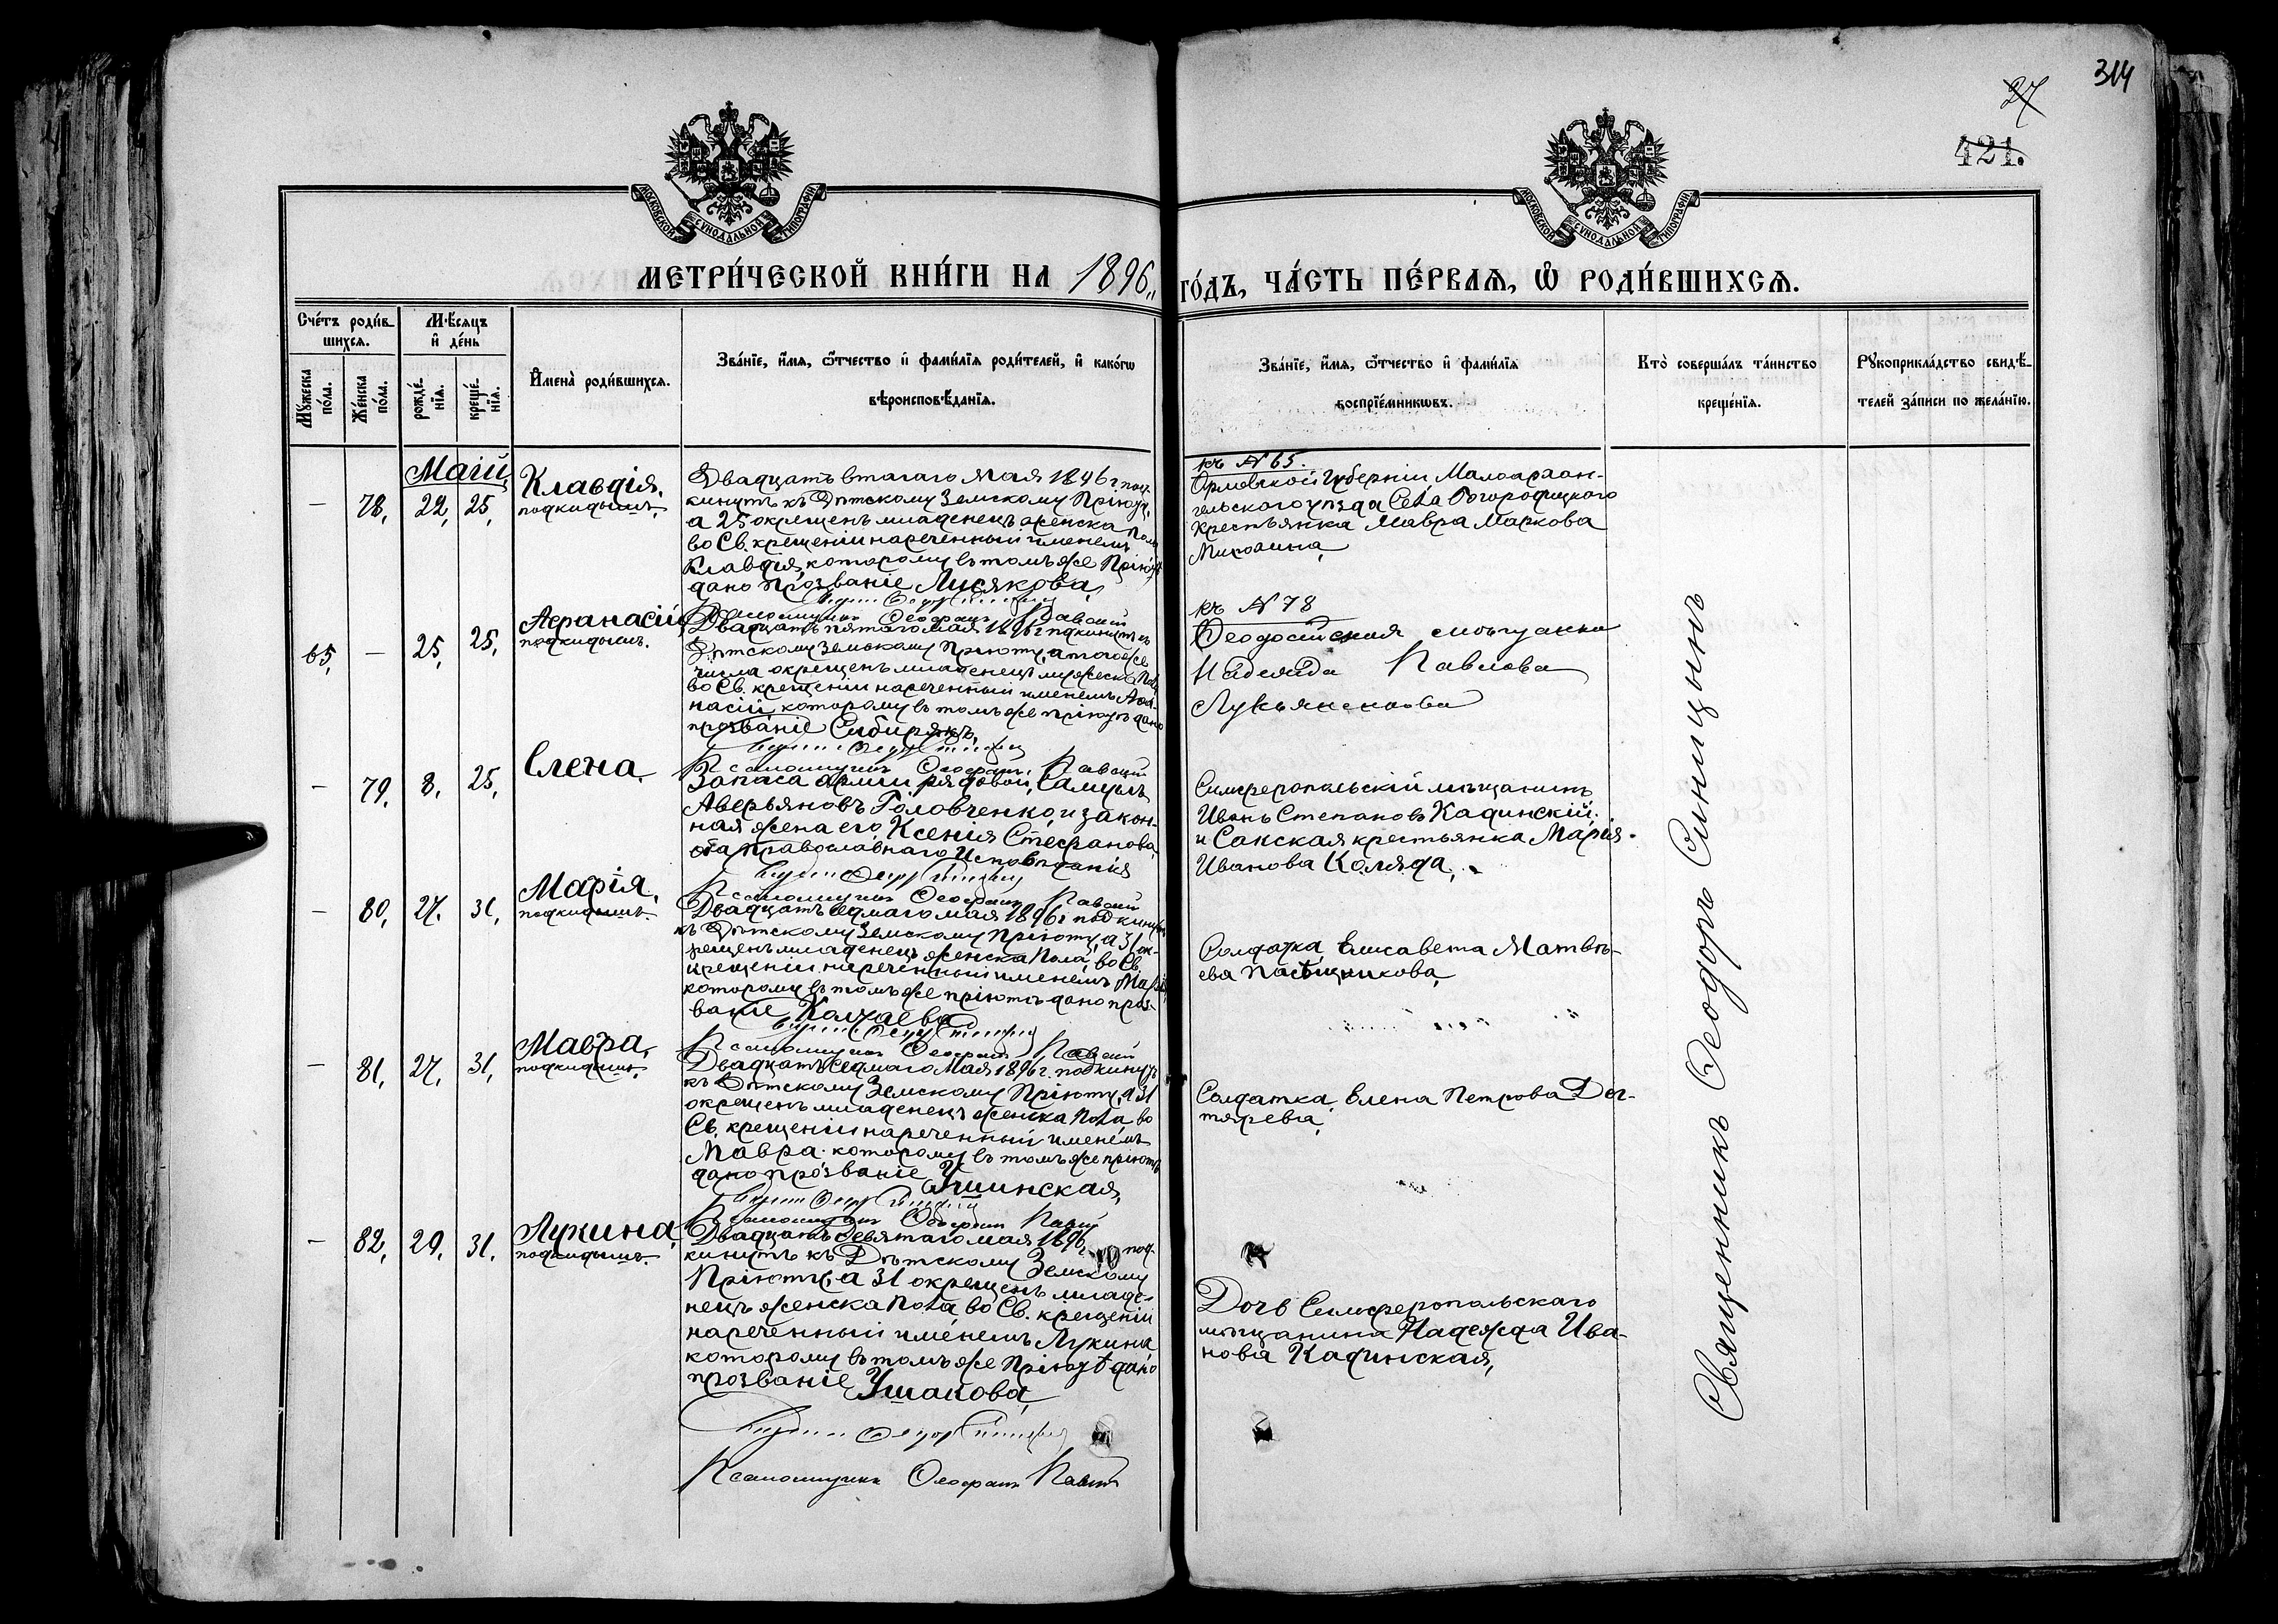 314
27
421.
МОСКОВСКОЙ СУНОДАЛЬНОЙ ТИПОГРАФІИ
МОСКОВСКОЙ СУНОДАЛЬНОЙ ТИПОГРАФІИ
МЕТРИ́ЧЕСКОЙ КНИ́ГИ НА 1896
ГО́ДЪ, ЧА́СТЬ ПЕ́РВАѦ, Ѡ҆ РОДИ́ВШИХСѦ.
Сче́тъ роди́в
шихсѧ.
Мꙋ́жеска
по́ла.
Же́нска
по́ла.
Мѣ́сѧцъ
и҆ де́нь
рожде́
нїѧ.
креще́
нїѧ.
И҆мена̀ роди́вшихсѧ.
Зва́нїе, и҆́мѧ, ѻ҆́тчество и҆ фами́лїѧ роди́телей, и҆ како́гѡ
вѣроисповѣ́данїѧ.
Зва́нїе, и҆́мѧ, ѻ҆́тчество и҆ фами́лїѧ
воспрїе́мникѡвъ.
Кто̀ соверша́лъ та́инство
креще́нїѧ.
Рꙋкоприкла́дство свидѣ́-
телей за́писи по жела́нїю.
Маій
– 78, 22, 25,
Клавдія,
подкидышъ.
Двадцать втораго Мая 1896 г. под-
кинутъ къ Дѣтскому Земскому Пріюту,
а 25 окрещенъ младенецъ женска пола
во Св. крещеніи нареченный именемъ
Клавдія, которому въ томъ же Пріютѣ
дано прозваніе Лисякова,
Псаломщикъ Ѳеофанъ
къ N 65.
Орловской Губерніи, Малоархан-
гельскаго уѣзда Села Богородицкаго
крестьянка Мавра Маркова
65, – 25, 25,
Аѳанасій
подкидышъ.
Двадцать пятаго мая 1896 г. подкинутъ къ
Дѣтскому Земскому Пріюту, а того же
числа окрещенъ младенецъ мужеска пола
во Св. крещеніи нареченный именемъ Аѳа-
насій которому въ томъ же пріютѣ дано
прозваніе Сибирякъ,
Псаломщикъ Ѳеофанъ
къ N 78
Ѳеодосійская мѣщанка
Надежда Павлова
– 79, 8, 25,
Елена
Запаса арміи рядовой, Самуилъ
Аверьяновъ Головченко, и закон-
ная жена его, Ксенія Стефанова,
оба православнаго Исповѣданія
Псаломщикъ Ѳеофанъ
Симферопольскій мѣщанинъ
Иванъ Степановъ Кадинскій
и Сакская крестьянка Марія
Иванова Коляда,
– 80, 27, 31,
Марія,
подкидышъ.
Двадцать седмаго мая 1896 г подкинутъ
къ Дѣтскому Земскому Пріюту, а 31 ок-
рещенъ младенецъ женска пола, во Св.
крещеніи, нареченный именемъ Марія,
которому въ томъ же пріютѣ дано проз-
ваніе
Псаломщикъ Ѳеофанъ
Солдатка, Елисавета Матвѣ-
ева
– 81, 27, 31,
Мавра,
подкидышъ.
Двадцать седмаго Мая 1896 г. подкинутъ
къ Дѣтскому Земскому Пріюту, а 31
окрещенъ младенецъ женска пола во
Св. крещеніи нареченный именемъ
Мавра которому въ томъ же пріютѣ
дано прозваніе Ушинская,
Псаломщикъ Ѳеофанъ
Солдатка, Елена Петрова Дег-
тярева,
– 82, 29, 31,
Лукина,
подкидышъ.
Двадцать девятаго мая 1896 г. под-
кинутъ къ Дѣтскому Земскому
Пріюту, а 31 окрещенъ младе-
нецъ женска пола во Св. крещеніи
нареченный именемъ Лукина
которому въ томъ же Пріютѣ дано
прозваніе Ушакова,
Псаломщикъ Ѳеофанъ
Дочь Симферопольскаго
мѣщанина Надежда Ива-
нова Кадинская,
Священникъ Ѳеодоръ Синицынъ